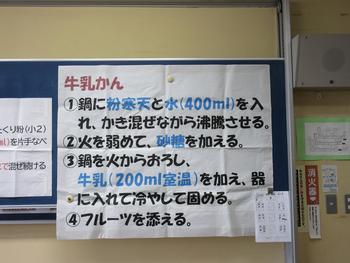 牛乳かん
①鍋に粉寒天と水(400ml)を入
れ、かき混ぜながら沸騰させる。
②火を弱めて、砂糖を加える。
③鍋を火からおろし、
牛乳(200ml室温)を加え、器
に入れて冷やして固める。
④フルーツを添える。
くり粉(小2)
を片手なべ
混ぜ続ける
消火器